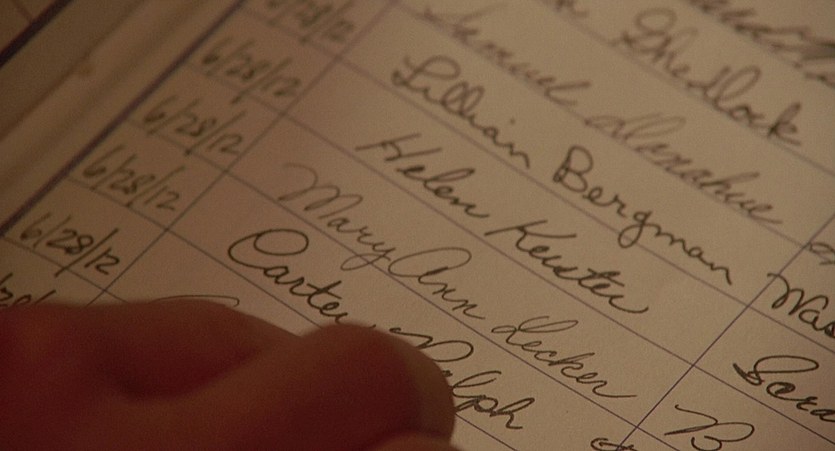 Shedlock
6/28/12 Samuel Donahue
6/28/12 Lillian Bergman Was
6/28/12 Helen Keuster Scra
6/28/12 Mary Ann Lecker B
6/28/12 Carter Ralph